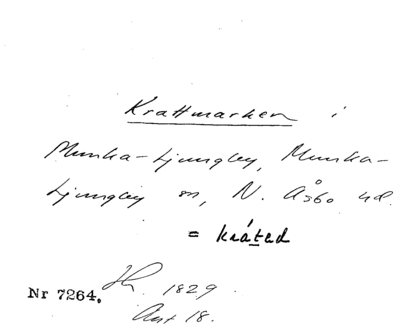 Krattmarken i
Munka-Ljungby, Munka-
Ljungby sn, N. Åsbo hd.
= kråted
1829
Nr 7264.
Akt 18.